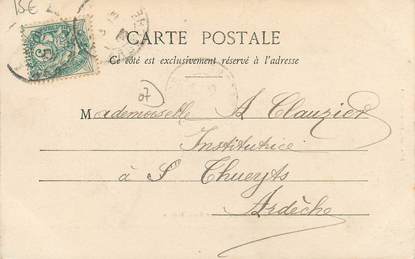 15€
CARTE POSTALE
Ce côté est exclusivement réservé à l'adresse
07
Mademoiselle A Clauzier
Institutrice
à S Thueyts
Ardèche